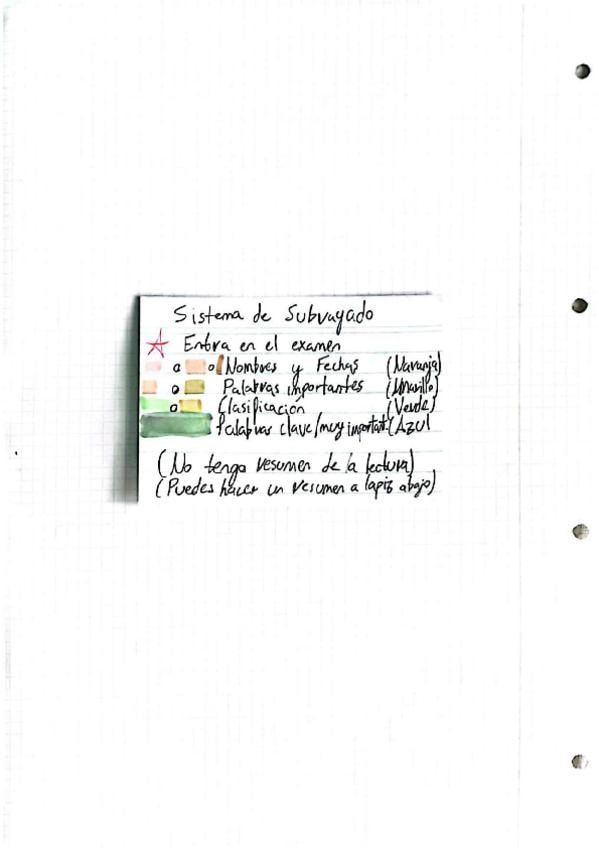 Sistema de Subrayado
Entra en el examen
o o Nombres y Fechas (Naranja)
o Palabras importantes (Amarillo)
o Clasificación (Verde)
Palabras clave/muy important (Azul
(No tengo resumen de la lectura)
(Puedes hacer un resumen a lapiz abajo)